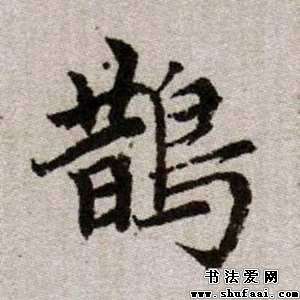 鵲
书法爱网
www.shufaai.com